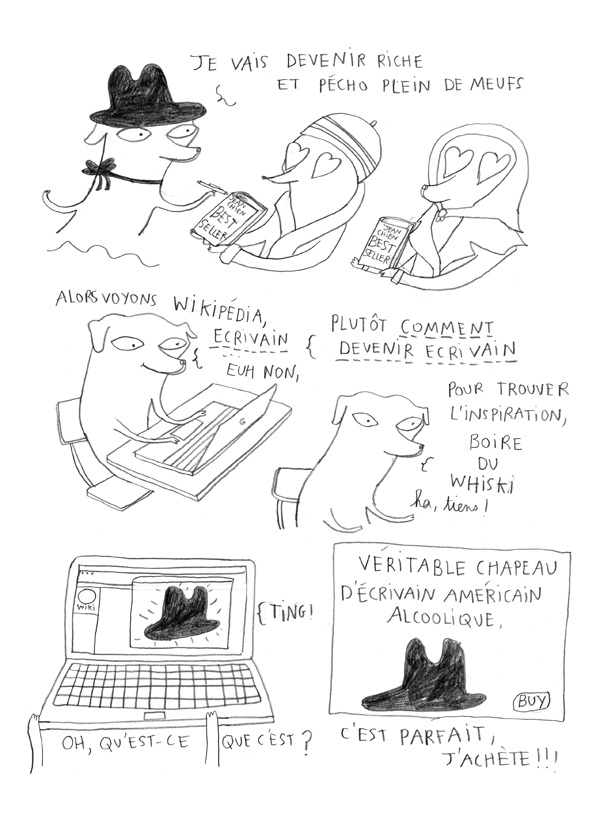 JE VAIS DEVENIR RICHE
ET PÉCHO PLEIN DE MEUFS
JEAN
CHIEN
BEST
SELLER
JEAN
CHIEN
BEST
SELLER
ALORS VOYONS WIKIPÉDIA,
ECRIVAIN
EUH NON,
PLUTÔT COMMENT
DEVENIR ECRIVAIN
POUR TROUVER
L'INSPIRATION,
BOIRE
DU
WHISKI
ha, tiens!
WIKI
TING!
OH, QU'EST-CE QUE C'EST?
VÉRITABLE CHAPEAU
D'ÉCRIVAIN AMÉRICAIN
ALCOOLIQUE.
BUY
C'EST PARFAIT,
J'ACHÈTE!!!